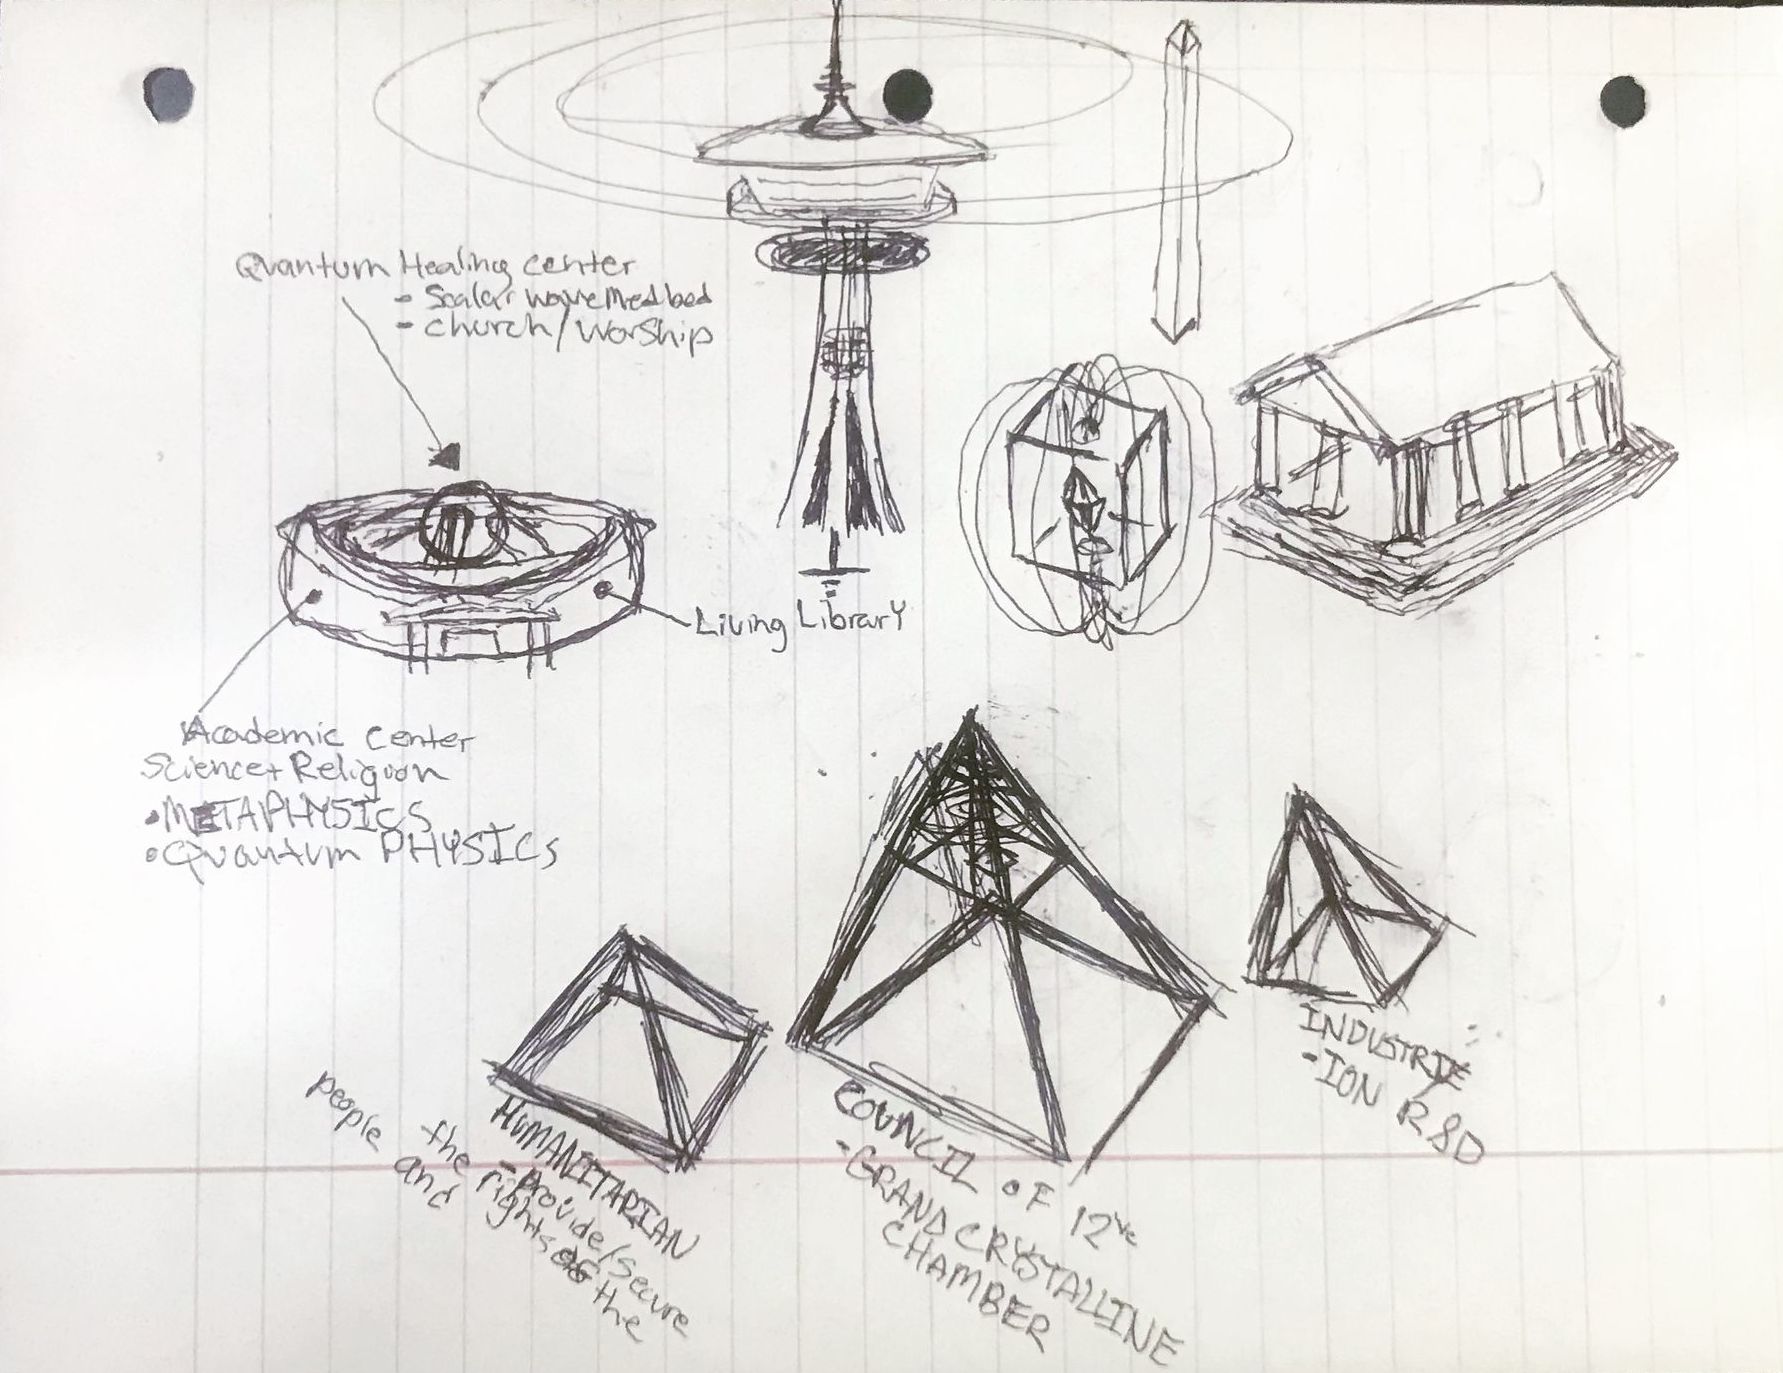 Quantum Healing center
- Scalar wave Med bed
- church/worship
Living Library
Academic center
Science + Religion
• METAPHYSICS
• Quantum PHYSICS
HUMANITARIAN
- provide/secure
the rights of the
people and
COUNCIL OF 12
- GRAND CRYSTALLINE
CHAMBER
INDUSTRIE
- ION R&D